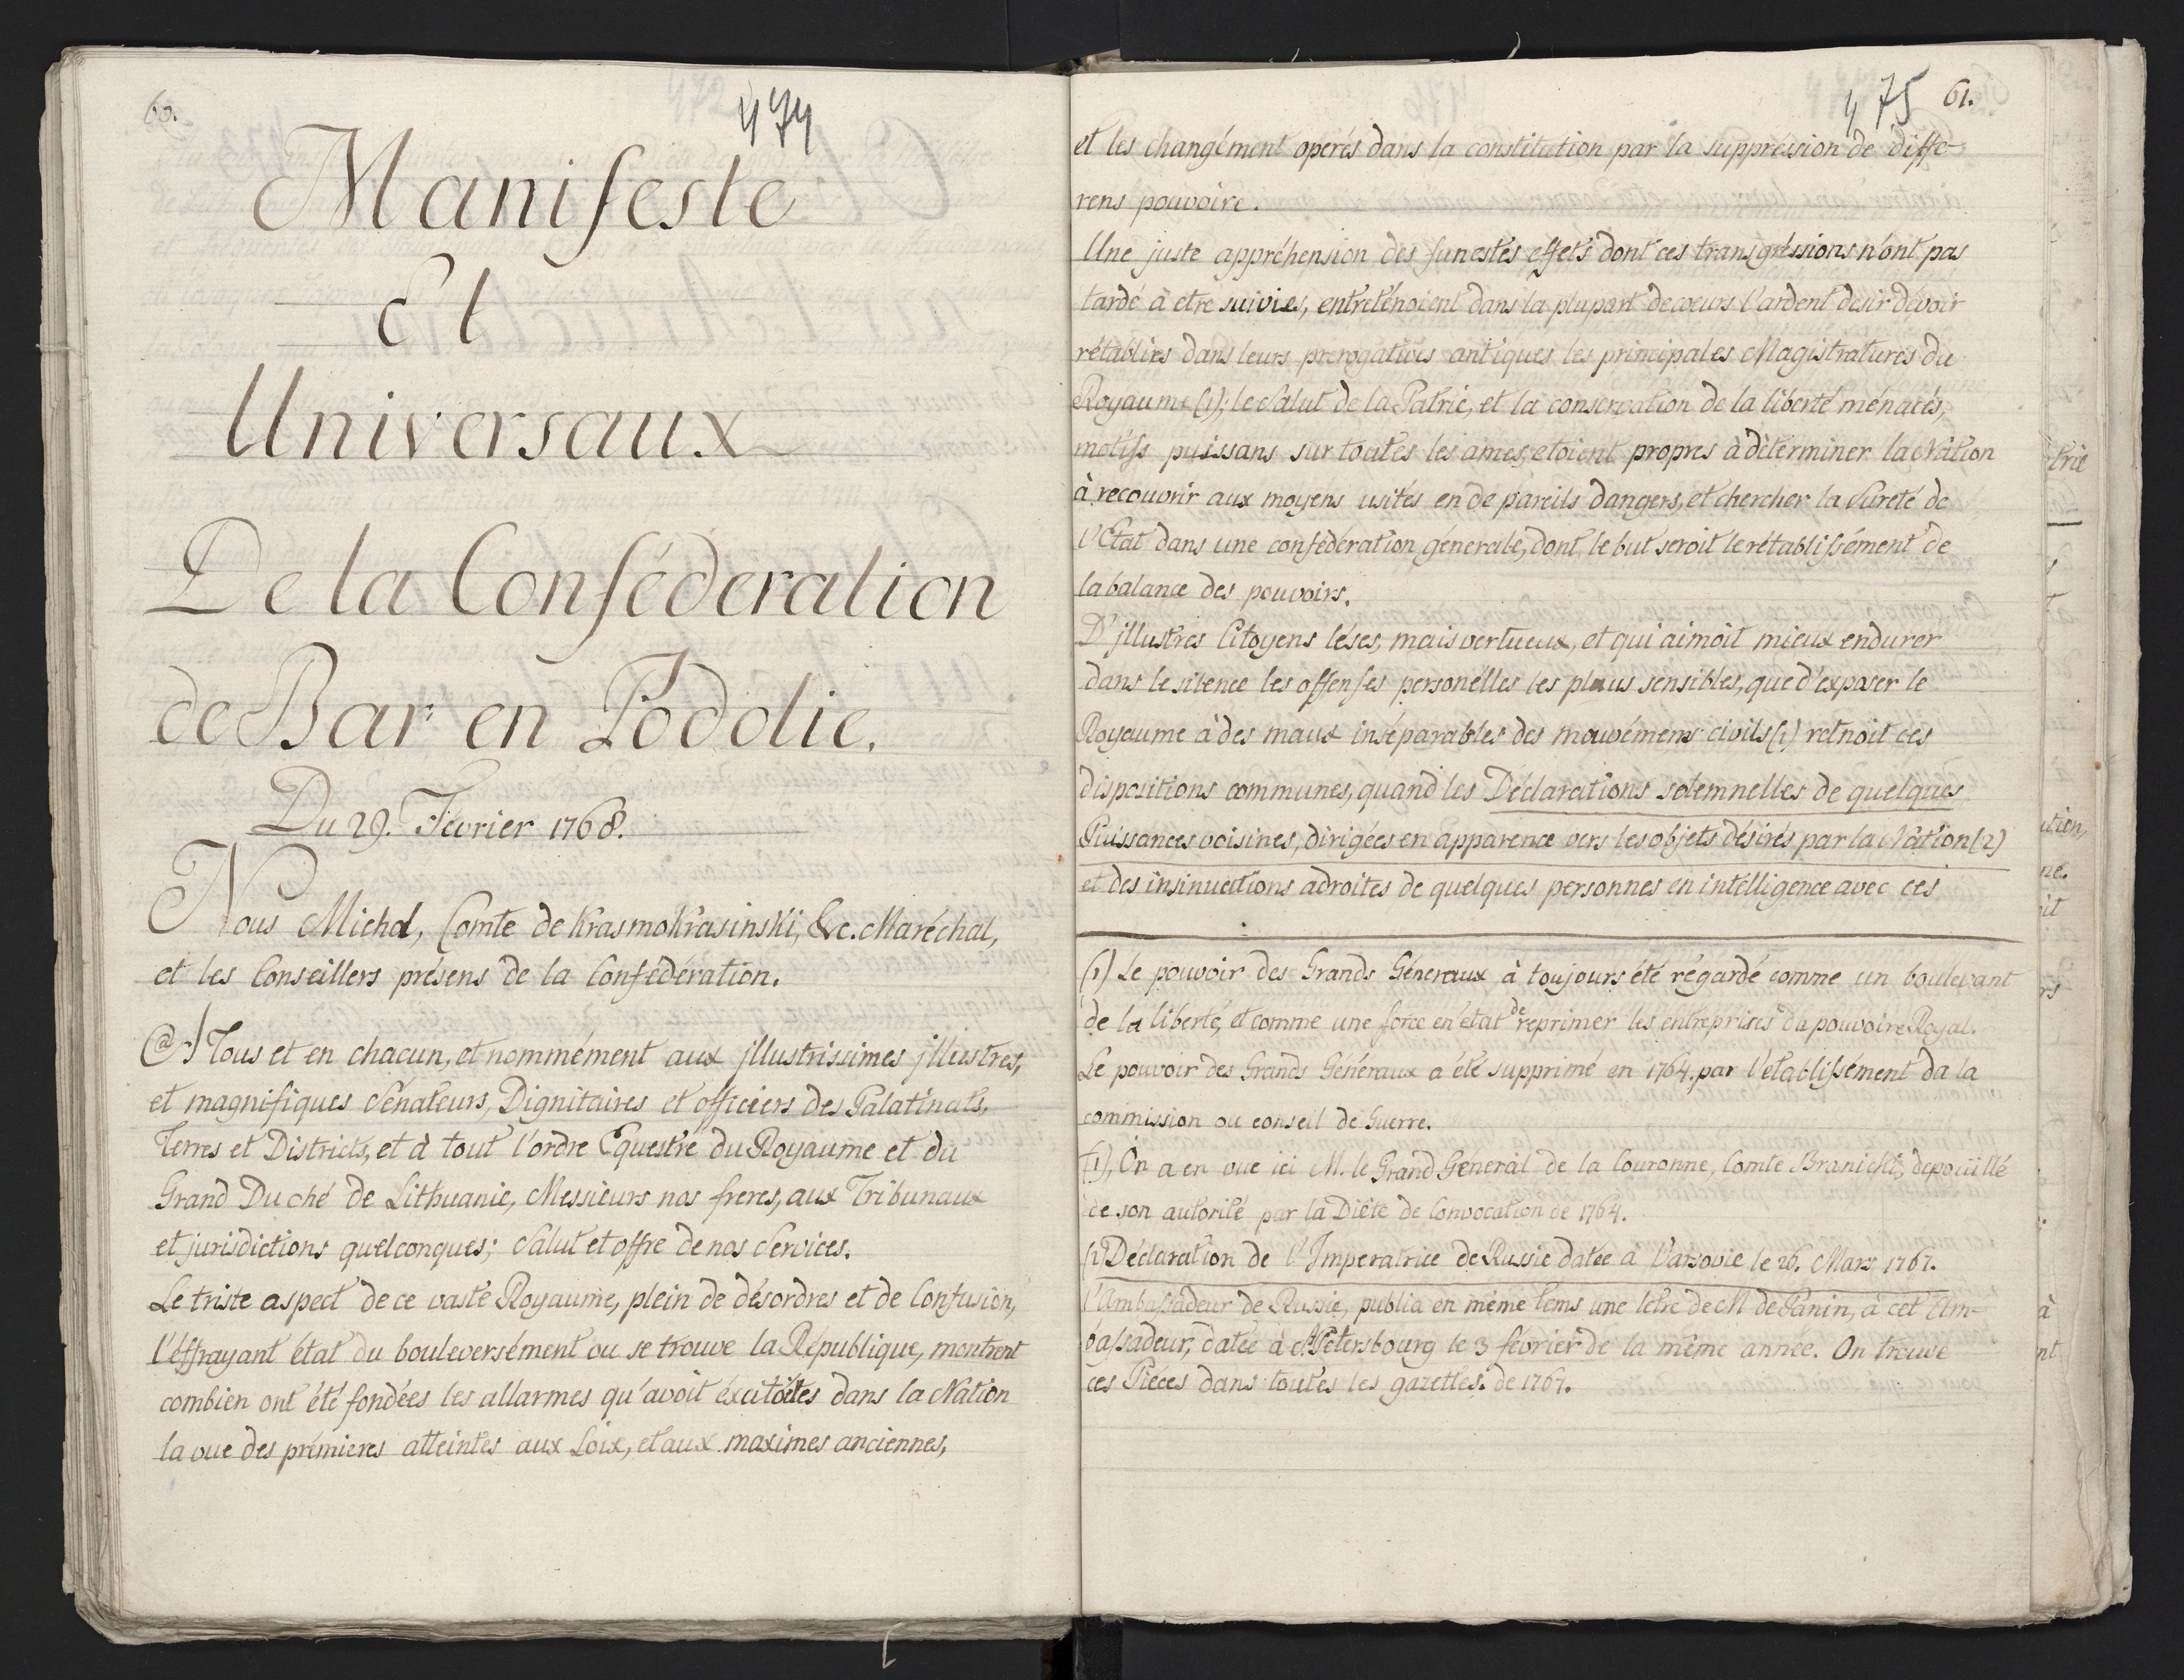 60.
474
Manifeste
Et
Universaux
De la Conféderation
de Bar en Podolie.
Du 29. Février 1768.
Nous Michel, Comte de Krasmokrasinski, &c. Maréchal,
et les Conseillers présens de la Confédération.
@ Tous et en chacun, et nommément aux jllustrissimes jllustres,
et magnifiques Sénateurs, Dignitaires et officiers des Palatinats,
Terres et Districts, et à tout l'ordre Equestre du Royaume et du
Grand Duché de Lithuanie, Messieurs nos freres, aux Tribunaux
et jurisdictions quelconques; Salut et offre de nos Services.
Le triste aspect de ce vaste Royaume, plein de désordres et de Confusion,
l'éffrayant état du bouleversément ou se trouve la République, montrent
combien ont été fondées les allarmes qu'avoit dans la Nation
la vue des prémieres atteintes aux Loix, et aux maximes anciennes,
475 61.
et les changément opérés dans la constitution par la suppréssion de diffé-
rens pouvoire.
Une juste appréhension des funestes effets dont ces transgréssions n'ont pas
tardé à etre suivies, entreténoient dans la plupart de coeurs l'ardent desir dévoir
rétablies dans leurs prerogatives antiques les principales Magistratures du
Royaume (1); le Salut de la Patrie, et la conservation de la liberté ménacés,
motifs puissans sur toutes les ames, etoient propres à déterminer la Nation
à recouvrir aux moyens usités en de pareils dangers, et chercher la Sureté de
l'Etat dans une confédération génerale, dont le but seroit le rétablissément de
la balance des pouvoirs.
D'jllustres Citoyens léses, mais vertueux, et qui aimoit mieux endurer
dans le silence les offenses personélles les plus sensibles, que d'éxposer le
Royaume à des maux inséparables des mouvémens civils (1) retnoit ces
dispositions communes, quand les Déclarations solemnelles de quelques
Puissances voisines, dirigées en apparence vers les objets désirés par la Nation (2)
et des insinuations adroites de quelques personnes en intélligence avec ces
(1) Le pouvoir des Grands Géneraux à toujours été régardé comme un boulevant
de la liberté, et comme une force en état de reprimer les entreprises da pouvoire Royal.
Le pouvoir des Grands Généraux a été supprimé en 1764. par l'établissément da la
commission ou conseil de Guerre.
(1), On a en vue ici M. le Grand Géneral de la Couronne, Comte Branicki, depouillé
de son autorité par la Diéte de Convocation de 1764.
(2) Déclaration de l'Imperatrice de Russie datée à Varsovie le 26. Mars 1767.
l'Ambassadeur de Russie, publia en même tems une letre de M. de Panin, à cet Am-
bassadeur, datée à St. Petersbourg le 3 février de la même année. On trouve
ces Piéces dans toutes les gazettes. de 1767.